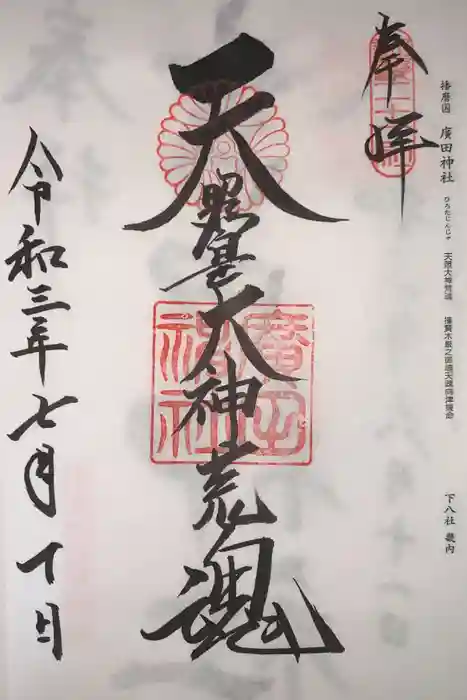 播磨国 廣田神社 ひろたじんじゃ 天照大神荒魂 撞賢木厳之御魂天疎向津媛命 下八社 畿内
奉拝
天照皇大神荒魂
廣田
神社
令和三年七月日